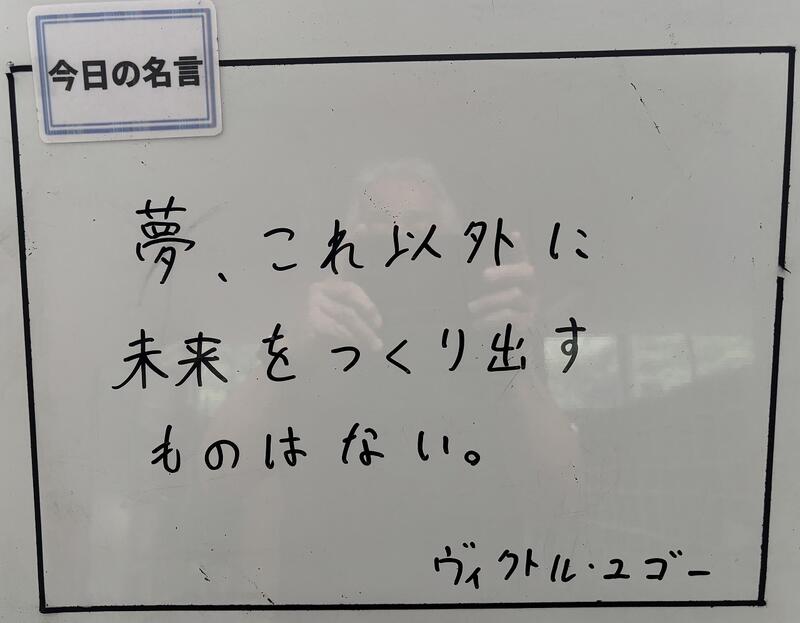 今日の名言
夢、これ以外に
未来をつくり出す
ものはない。
ヴィクトル・ユゴー